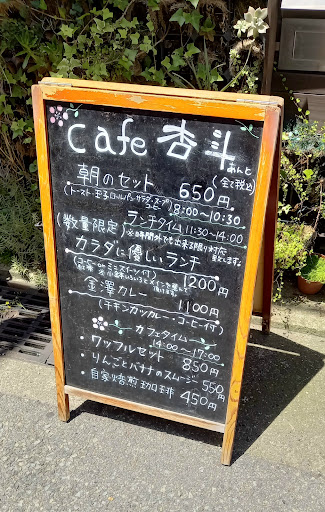 cafe 杏斗
あんと
(全て税込)
朝のセット 650円
(トースト・玉子ロールパン・サラダ・スープ
コーヒー) 8:00〜10:30
ランチタイム 11:30〜14:00
(数量限定) ※時間外でも出来る限り対応
致します。
カラダに優しいランチ
(コーヒー、ミニスイーツ付) 1200円
金澤カレー 1100円
(チキンカツカレー・コーヒー付)
カフェタイム
14:00〜17:00
・ワッフルセット 850円
・りんごとバナナのスムージー 550円
・自家焙煎珈琲 450円